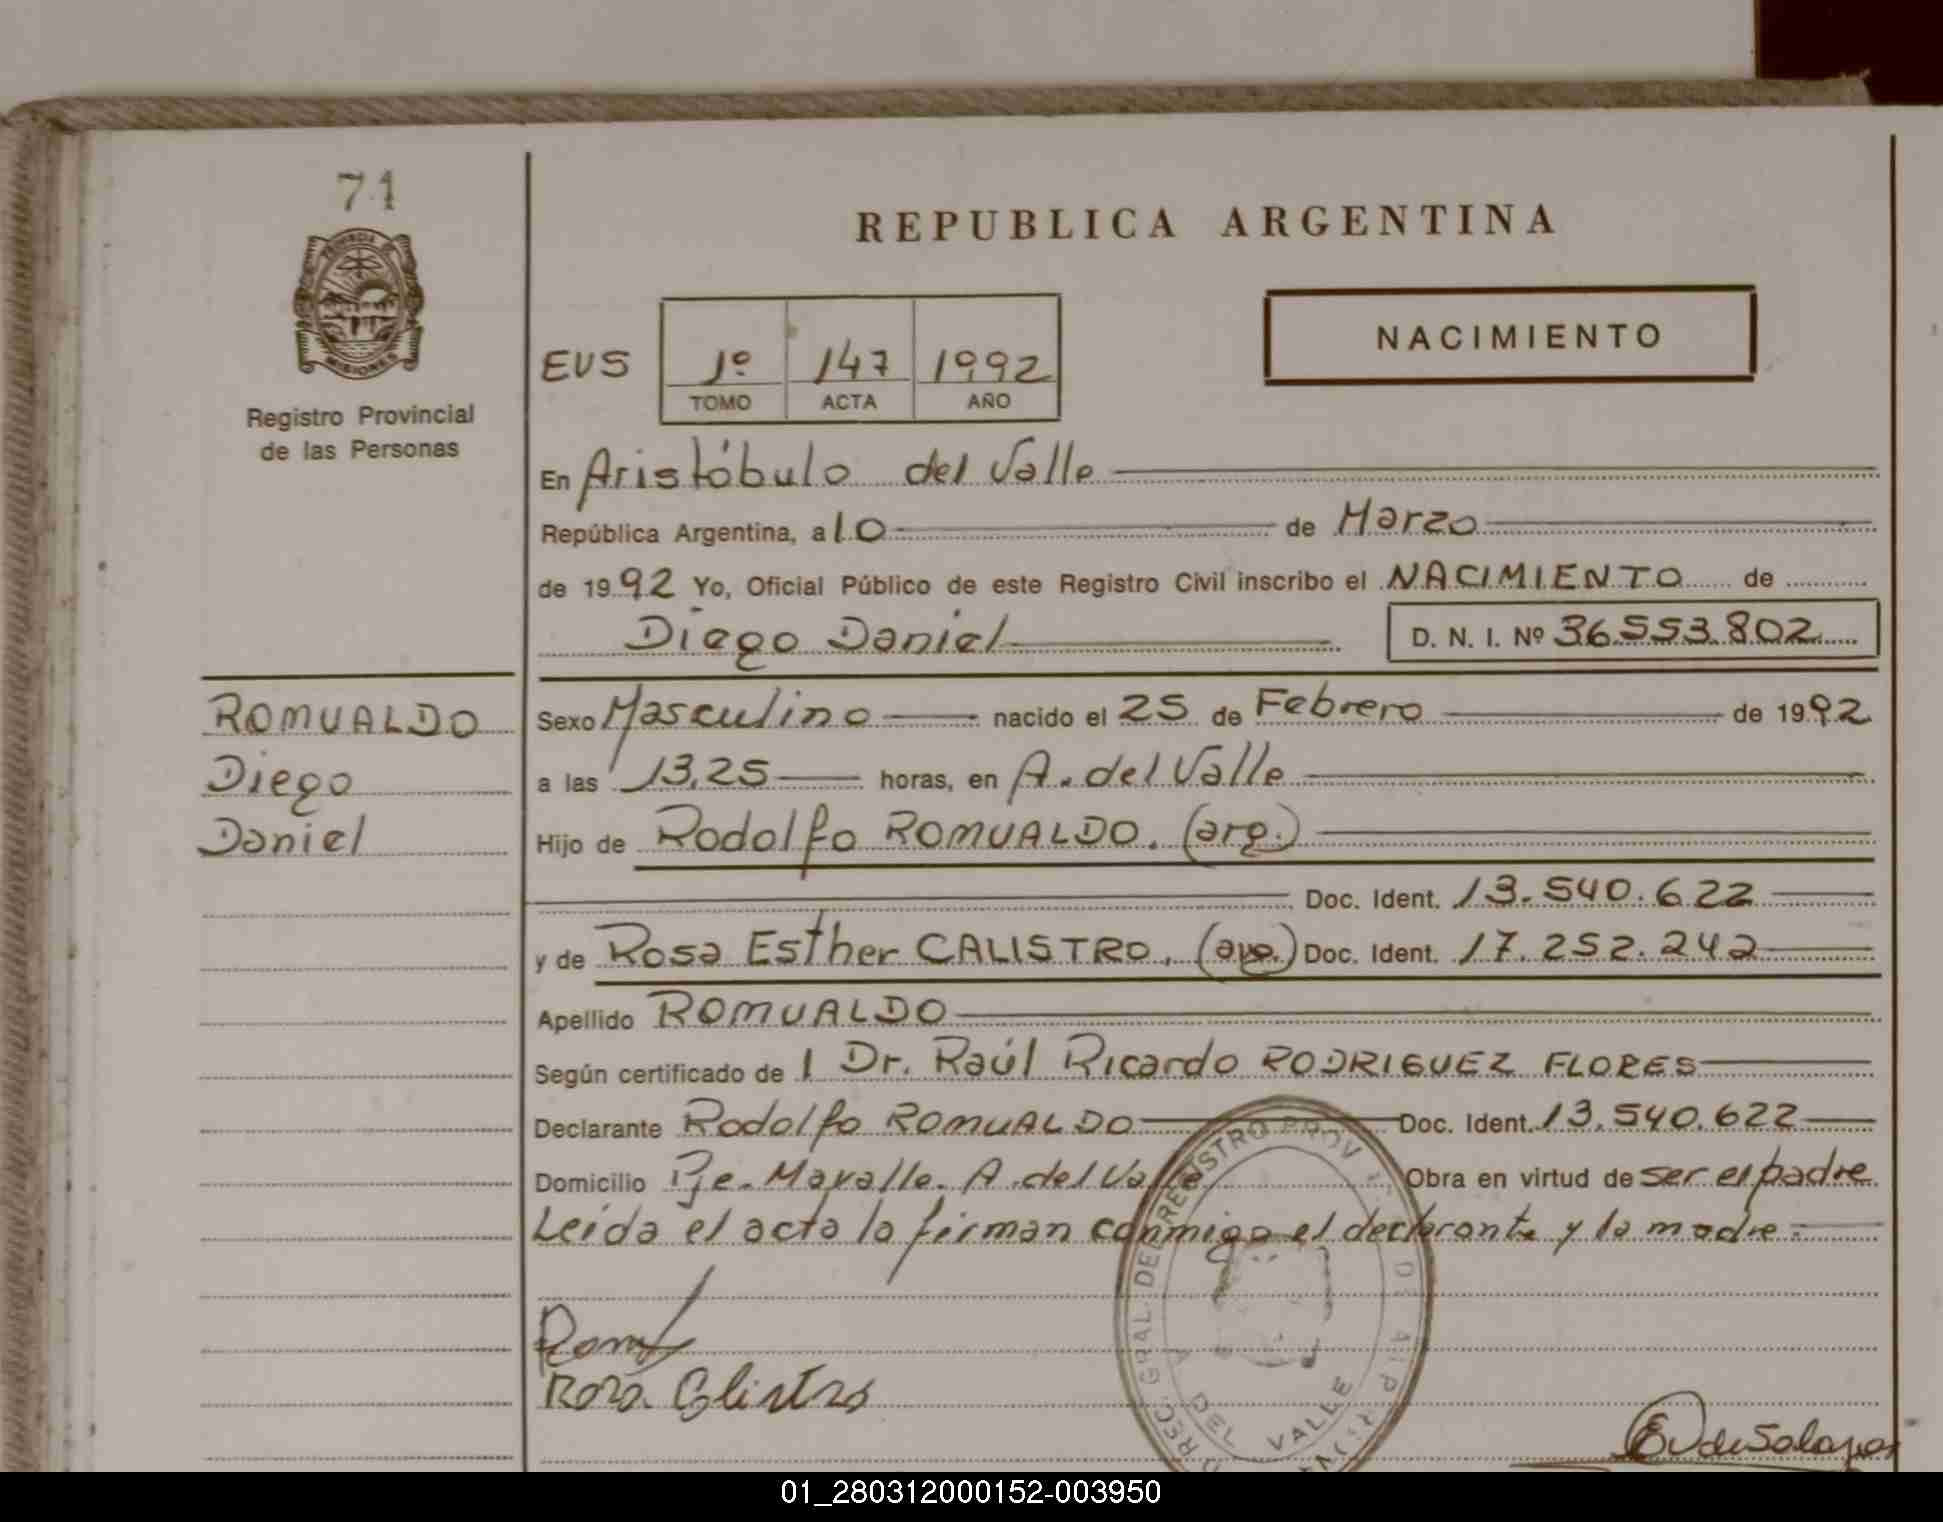 71
PROVINCIA DE
MISIONES
Registro Provincial
de las Personas
REPUBLICA ARGENTINA
NACIMIENTO
EVS 1º 147 1992
TOMO ACTA AÑO
En Aristóbulo del Valle
República Argentina, a 10 de Marzo
de 1992 Yo, Oficial Público de este Registro Civil inscribo el NACIMIENTO de
Diego Daniel D. N. I. Nº 36.553.802
ROMUALDO
Diego
Daniel
Sexo Masculino nacido el 25 de Febrero de 1992
a las 13,25 horas, en A. del Valle
Hijo de Rodolfo ROMUALDO. (arg.)
Doc. Ident. 13.540.622
y de Rosa Esther CALISTRO. Doc. Ident. 17.252.242
Apellido ROMUALDO
Según certificado de 1 Dr. Raúl Ricardo RODRIGUEZ FLORES
Declarante Rodolfo ROMUALDO Doc. Ident. 13.540.622
Domicilio Pje. Mavalle. A. del Valle Obra en virtud de ser el padre
Leida el acta la firman conmigo el declarante y la madre.
Rosa Calistro
REC. GRAL. DEL REGISTRO PROV
A DEL VALLE
01_280312000152-003950